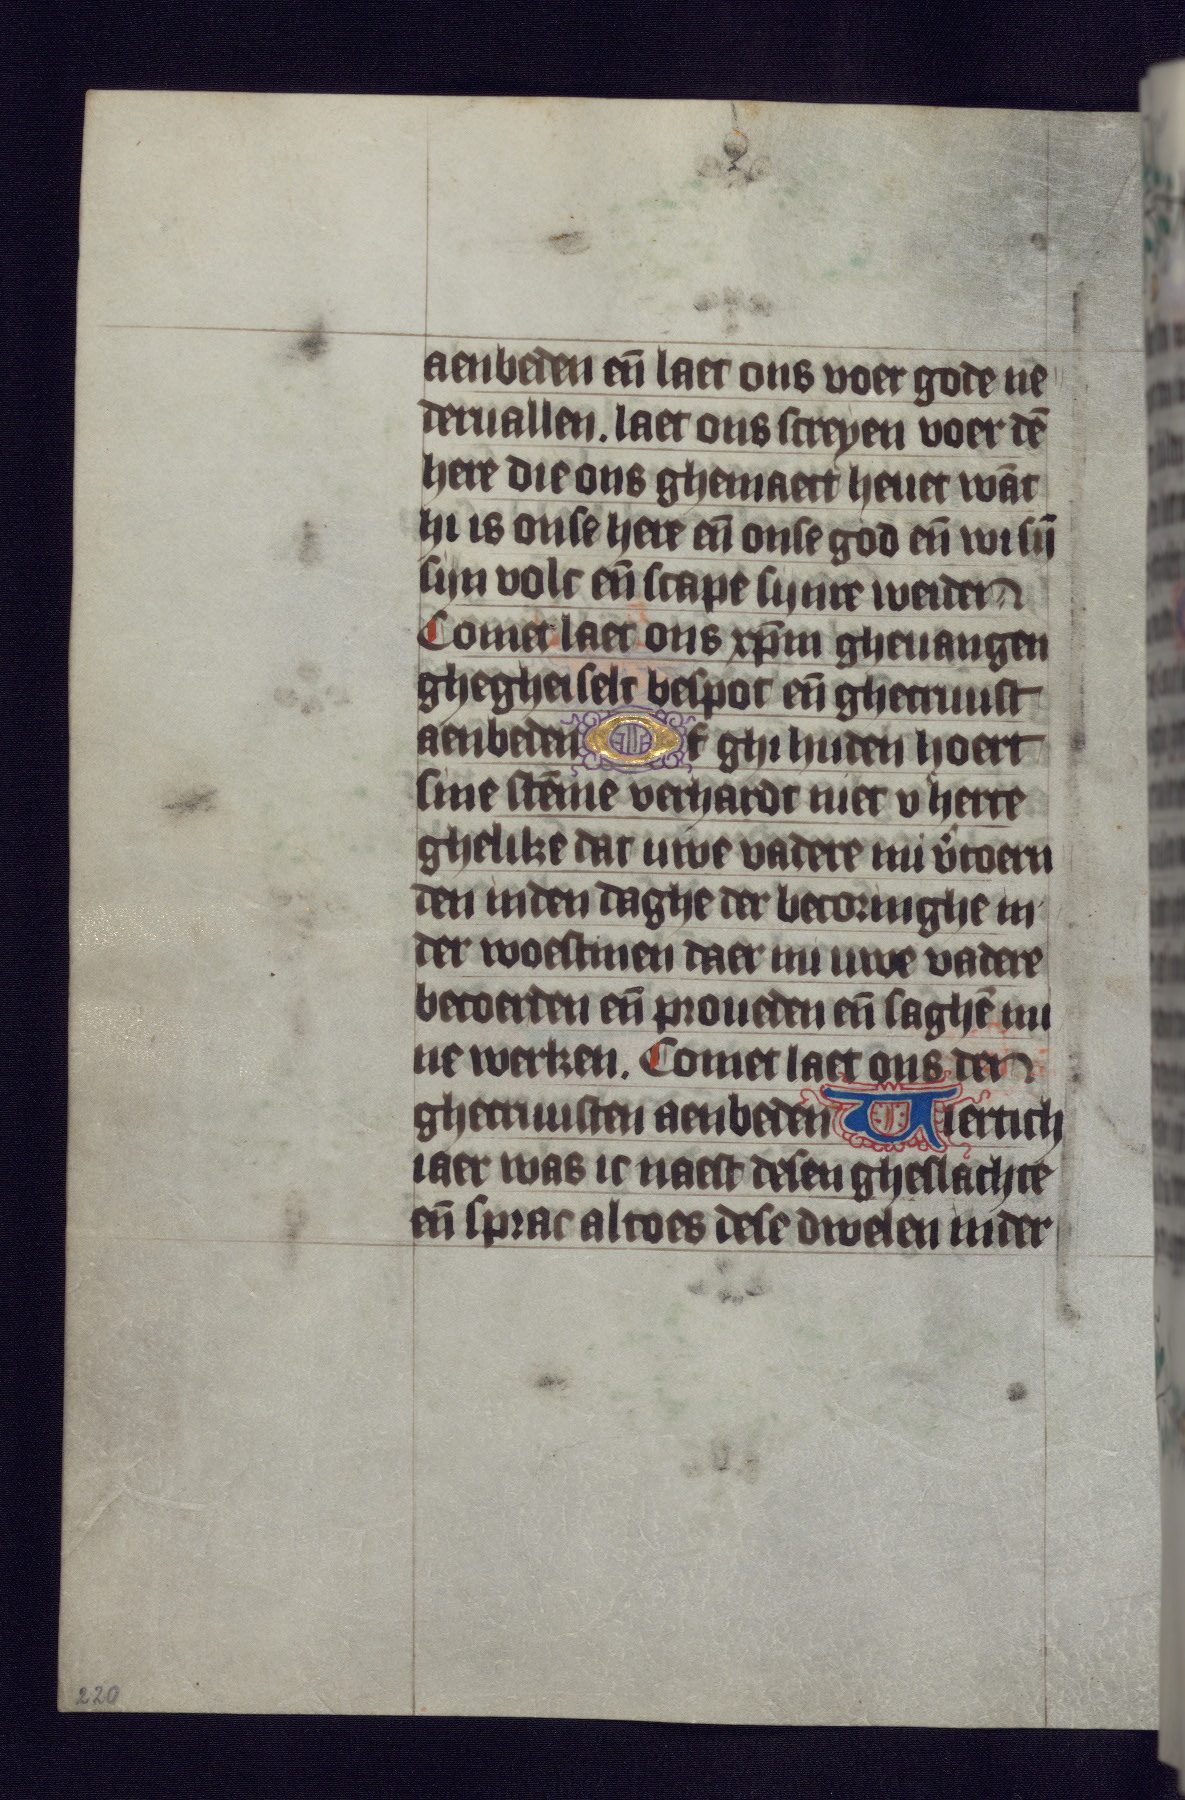 aenbeden en̄ laet ons voer gode ne
deruallen. laet ons screyen voer dē
here die ons ghemaect heuet wāt
hi is onse here en̄ onse god en̄ wi sij̄
sijn volc en̄ scape sijnre weiden
Comet laet ons xp̄m gheuangen
ghegheiselt bespot en̄ ghecruust
aenbeden Of ghi huden hoert
sine stēme verhardt niet v herte
ghelike dat uwe vadere mi v̓toern
den inden daghe der becoringhe in
der woestinen daer mi uwe vadere
becoerden en̄ proueden en̄ saghē mi
ne werken. Comet laet ons den
ghecruusten aenbeden Viertich
iaer was ic naest desen gheslachte
en̄ sprac altoes dese dwelen inder
220